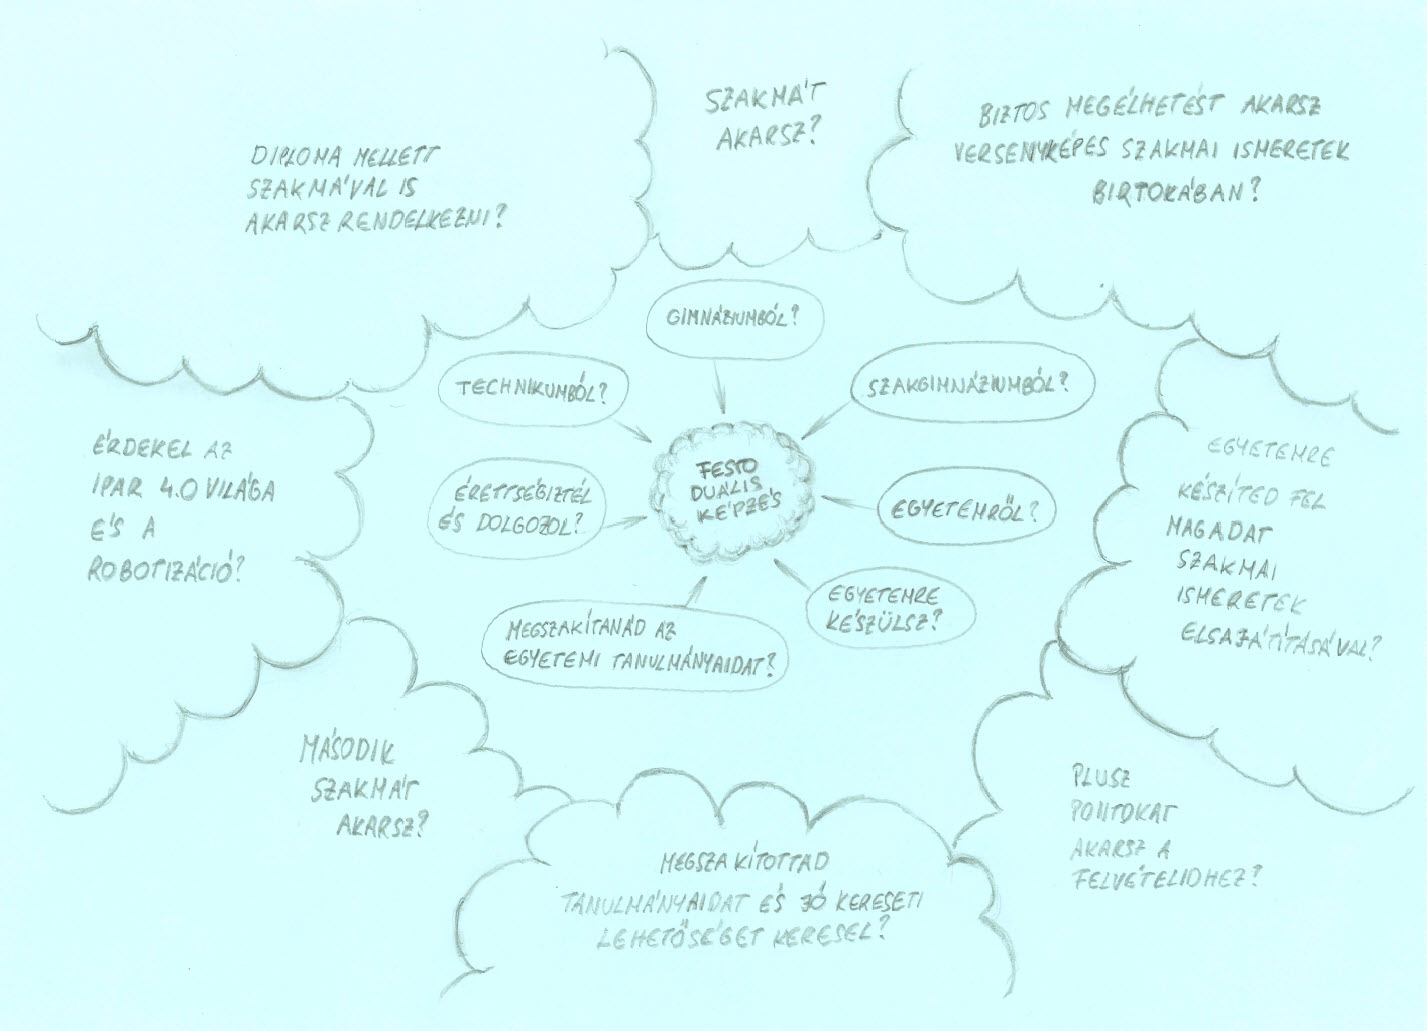 SZAKMÁT
AKARSZ?
DIPLOMA MELLETT
SZAKMÁVAL IS
AKARSZ RENDELKEZNI?
BIZTOS MEGÉLHETÉST AKARSZ
VERSENYKÉPES SZAKMAI ISMERETEK
BIRTOKÁBAN?
GIMNÁZIUMBÓL?
TECHNIKUMBÓL?
SZAKGIMNÁZIUMBÓL?
ÉRDEKEL AZ
IPAR 4.0 VILÁGA
ÉS A
ROBOTIZÁCIÓ?
ÉRETTSÉGIZTÉL
ÉS DOLGOZOL?
FESTO
DUÁLIS
KÉPZÉS
EGYETEMRŐL?
EGYETEMRE
KÉSZÍTED FEL
MAGADAT
SZAKMAI
ISMERETEK
ELSAJÁTÍTÁSÁVAL?
MEGSZAKÍTANÁD AZ
EGYETEMI TANULMÁNYAIDAT?
EGYETEMRE
KÉSZÜLSZ?
MÁSODIK
SZAKMÁT
AKARSZ?
MEGSZAKÍTOTTAD
TANULMÁNYAIDAT ÉS JÓ KERESETI
LEHETŐSÉGET KERESEL?
PLUSZ
PONTOKAT
AKARSZ A
FELVÉTELIDHEZ?